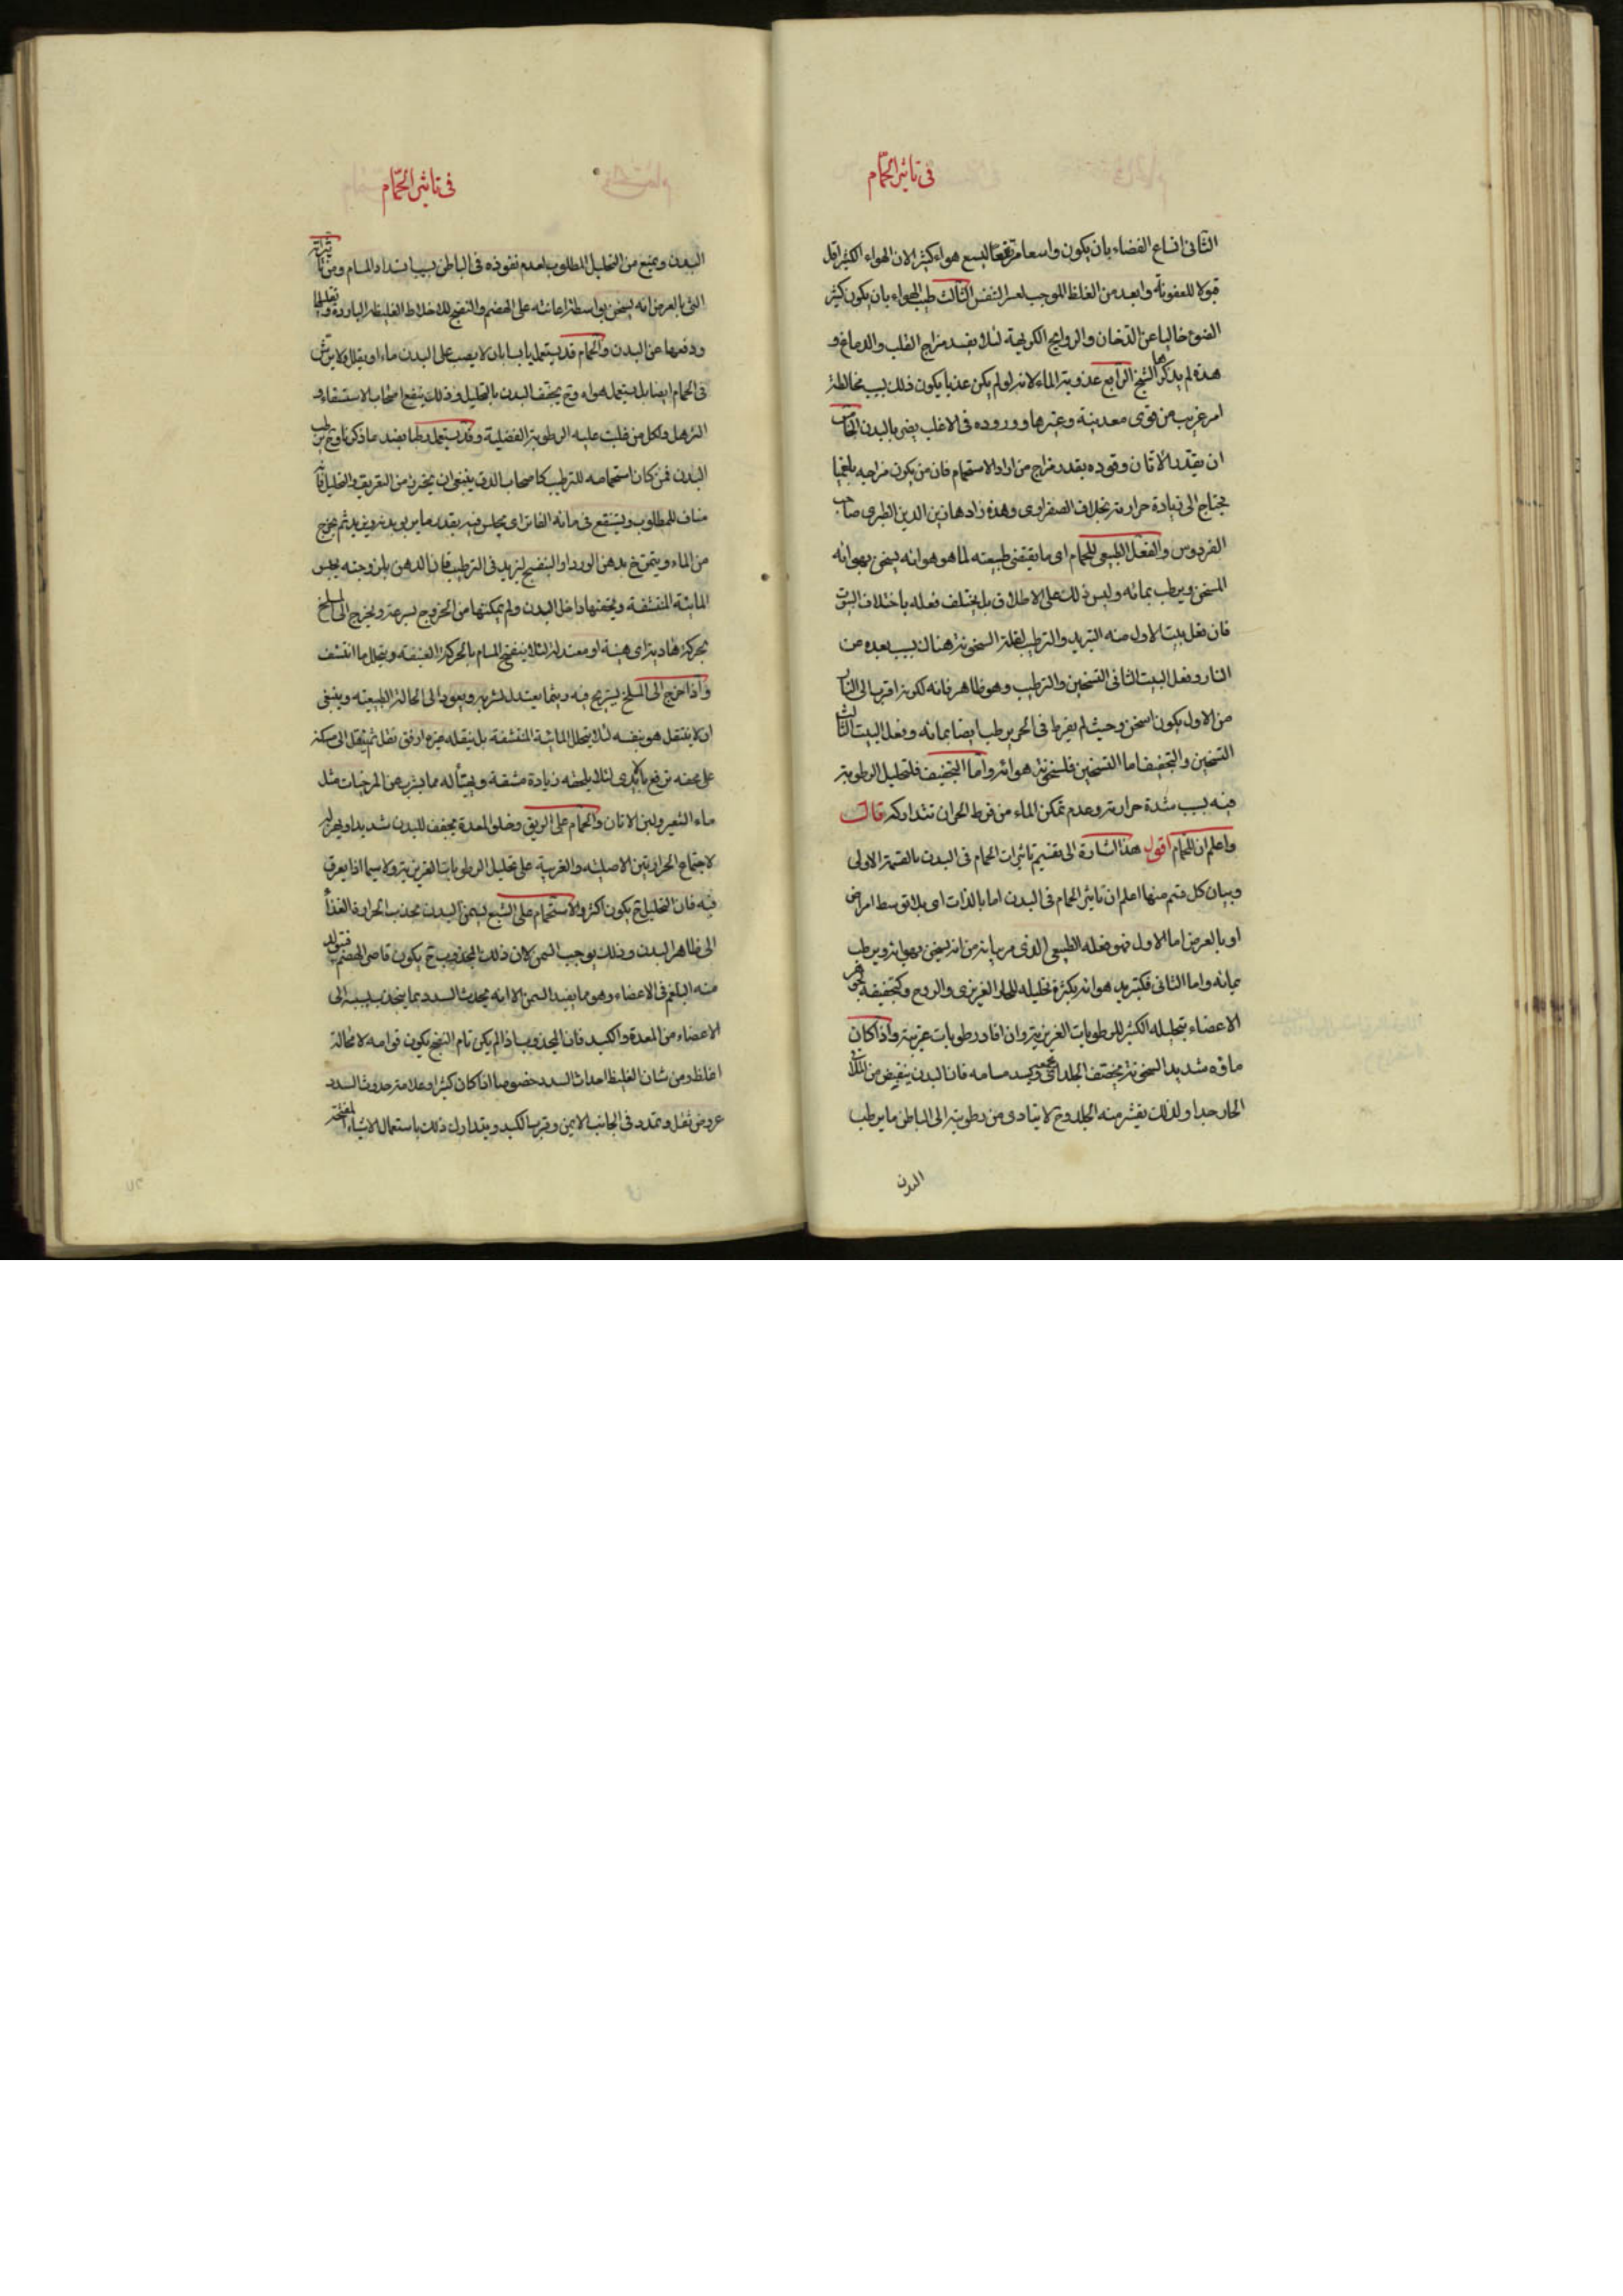 فى تاثير الحمّام
الثانى اتساع الفضاء بان يكون واسعا مرتفعا ليسع هواء كثيرا لان الهواء الكثير اقل
قبولا للعفونة وابعد من الغلظ الموجب لعسر التنفس الثالث طيب الهواء بان يكون كثير
الضوء خاليا عن الدخان والروايح الكريهة لئلا يفسد مزاج القلب والدماغ و
هذه لم يذكرها الشيخ الرابع عذوبة الماء لانه لو لم يكن عذبا يكون ذلك بسبب مخالطة
امر غريب من قوى معدنية وغيرها ووروده فى الاغلب يضر بالبدن الخامس
ان يقدر الاتان وقوده بقدر مزاج من اراد الاستحمام فان من يكون مزاجه بلغميا
يحتاج الى زيادة حرارته بخلاف الصفراوى وهذه زادها زين الدين الطبرى صاحب
الفردوس والفعل الطبيعى للحمام اى ما يقتضى طبيعته لما هو هو انه يسخن بهوائه
المسخن ويرطب بمائه وليس ذلك على الاطلاق بل يختلف فعله باختلاف البيوت
فان فعل بيت الاول منه التبريد والترطيب لقلة السخونة هناك بسبب بعده من
النار وفعل البيت الثانى التسخين والترطيب وهو ظاهر فانه لكونه اقرب الى النار
من الاول يكون اسخن وحيث لم يفرط فى الحر يرطب ايضا بمائه وفعل البيت الثالث
التسخين والتجفيف اما التسخين فلسخونة هوائه واما التجفيف فلتحليل الرطوبة
فيه بسبب شدة حرارته وعدم تمكن الماء من فرط الحر ان تتداركه قال
واعلم ان للحمام اقول هذا اشارة الى تقسيم تاثيرات الحمام فى البدن بالقسمة الاولى
وبيان كل قسم منها اعلم ان تاثير الحمام فى البدن اما بالذات اى بلا توسط امر اخر
او بالعرض اما الاول فهو فعله الطبيعى الذى مر بيانه من انه يسخن بهوائه ويرطب
بمائه واما الثانى فكتبريد هوائه بكثرة تحليله للحار الغريزى والروح وكتجفيفه جوهر
الاعضاء بتحليله الكثير للرطوبات الغريزية وان افاد رطوبات غريبة واذا كان
ماؤه شديد السخونة يخصف الجلد اى يجمعه ويسد مسامه فان البدن ينقبض من الملاقى
الحار جدا ولذلك يقشعر منه الجلد وح لا يتادى من رطوبته الى الباطن ما يرطب
البدن
فى تاثير الحمّام
البدن ويمنع من التحليل المطلوب لعدم نفوذه فى الباطن بسبب انسداد المسام ومن تاثيراته
التى بالعرض انه يسخن بواسطة اعانته على الهضم والنضج للاخلاط الغليظة الباردة وتحليلها
ودفعها عن البدن والحمام قد يستعمل يابسا بان لا يصب على البدن ماء او يقلل ولا يرش
فى الحمام ايضا بل يستعمل هواه وح يجفف البدن بالتحليل وذلك ينفع اصحاب الاستسقاء و
الترهل ولكل من غلبت عليه الرطوبة الفضلية وقد يستعمل رطبا بضد ما ذكرنا وح يرطب
البدن فمن كان استحمامه للترطيب كاصحاب الدق ينبغى ان يحترز من التعريق والتحليل فانه
مناف للمطلوب ويستنقع فى مائه الفاتر اى يجلس فيه بقدر ما يربو بدنه ويزيد ثم يخرج
من الماء ويتمرخ بدهن الورد او البنفسج ليزيد فى الترطيب فان الدهن بلزوجته يحبس
المائية المنتشفة ويحقنها داخل البدن ولم يمكنها من الخروج بسرعة ويخرج الى المسلخ
بحركة هادية اى هينة او معتدلة لئلا ينفتح المسام بالحركة العنيفة ويتحلل ما انتشف
واذا خرج الى المسلخ ليستريح فيه ريثما يعتدل بشرته ويعود الى الحالة الطبيعية وينبغى
ان لا ينتقل هو بنفسه لئلا يتحلل المائية المنتشفة بل ينقله غيره ارفق نقل ثم ينقل الى مسكنه
على محفة ترفع بالايدى لئلا يلحقه زيادة مشقة ويهيأ له مما يشرب من المرخيات مثل
ماء الشعير ولبن الاتان والحمام على الريق وخلو المعدة يجفف للبدن شديدا ويهزله
لاجتماع الحرارتين الاصلية والغريبة على تحليل الرطوبات الغريزية ولا سيما اذا يعرق
فيه فان التحليل ح يكون اكثر والاستحمام على الشبع يسمن البدن بجذب الحرارة الغذاء
الى ظاهر البدن وذلك يوجب السمن لان ذلك المجذوب ح يكون قاصر الهضم فيتولد
منه البلغم فى الاعضاء وهو مما يفيد السمن الا انه يحدث السدد بما ينجذب بسببه الى
الاعضاء من المعدة والكبد فان المجذوب اذا لم يكن تام النضج يكون قوامه لا محالة
اغلظ ومن شان الغليظ احداث السدد خصوصا اذا كان كثيرا وعلامة حدوث السدد
عروض ثقل وتمدد فى الجانب الايمن وقرب الكبد ويتدارك ذلك باستعمال الاشياء المفتحة